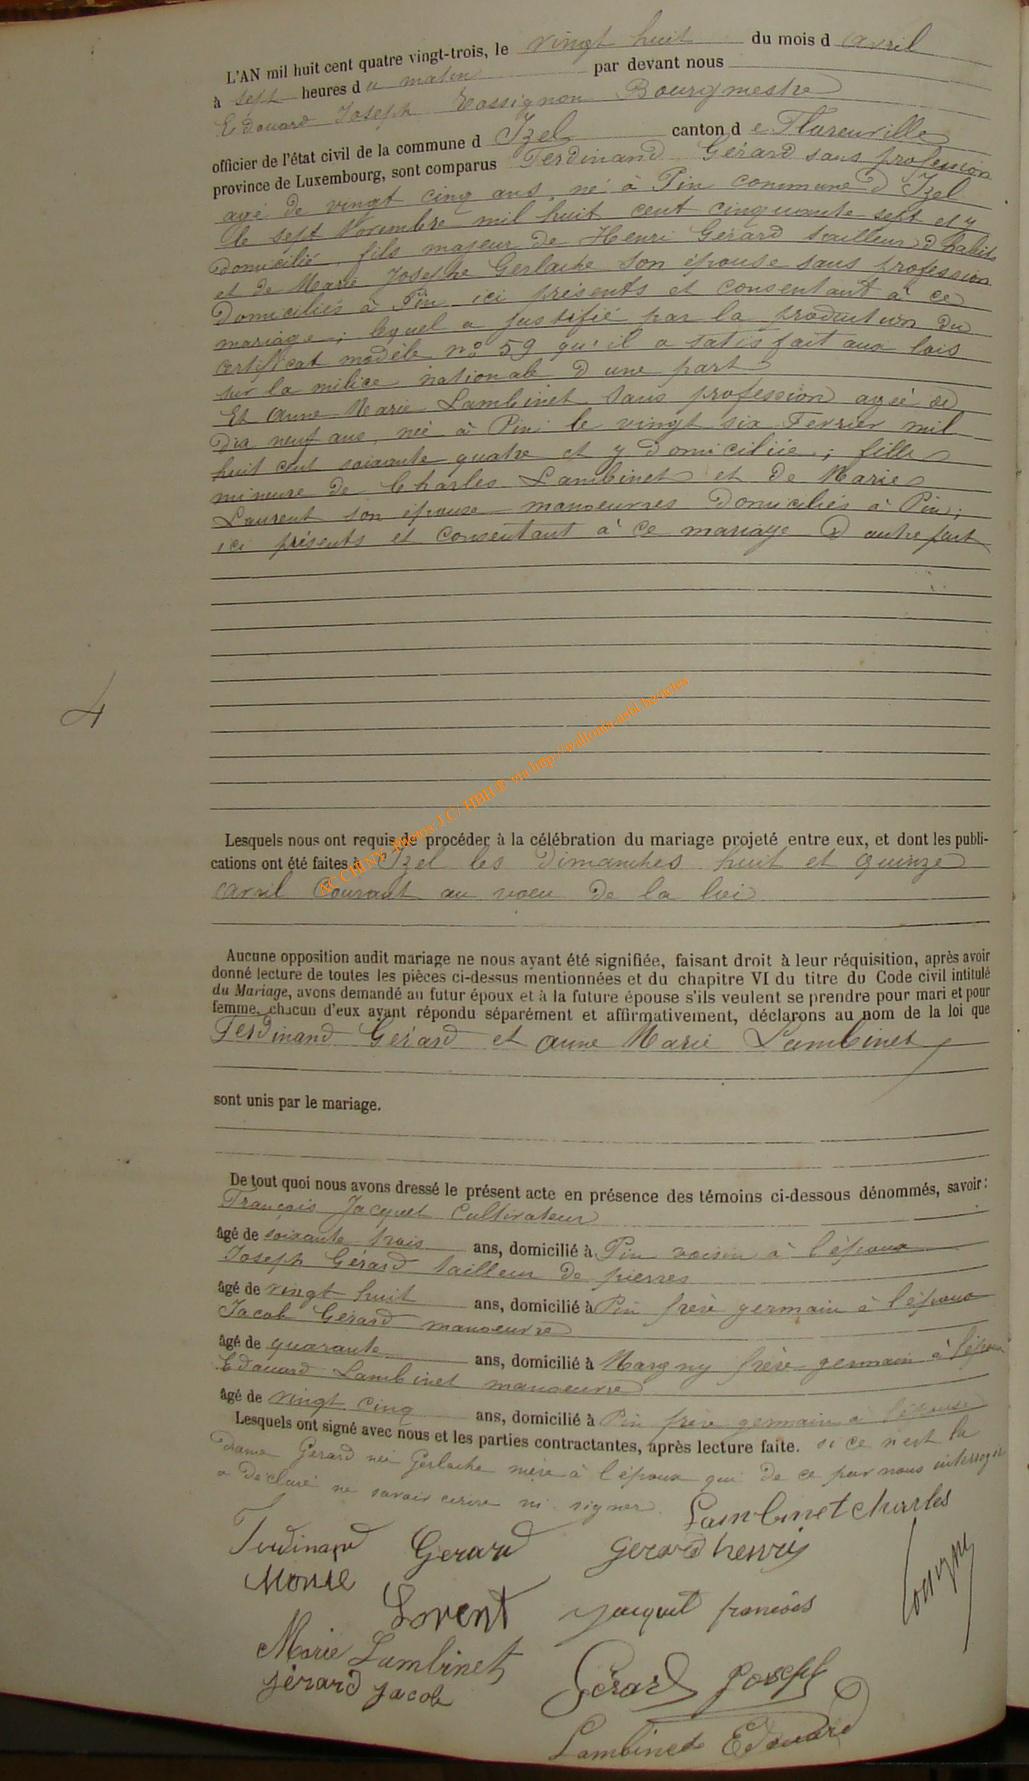 L'AN mil huit cent quatre vingt-trois, le vingt huit du mois d avril
à sept heures d u matin par devant nous
Edouard Joseph Rossignon Bourgmestre
officier de l'état civil de la commune d Izel canton d e Florenville
province de Luxembourg, sont comparus Ferdinand Gérard sans profession
agé de vingt cinq ans, né à Pin commune d Izel
le sept Novembre mil huit cent cinquante sept et y
domicilié, fils majeur de Henri Gérard tailleur d'habits
et de Marie Josephe Gerlache son épouse sans profession
domiciliés à Pin ici présents et consentant à ce
mariage; lequel a justifié par la production du
certificat modèle no 59 qu'il a satisfait aux lois
sur la milice nationale d une part
Et Anne Marie Lambinet sans profession agée de
dix neuf ans, née à Pin le vingt six Fevrier mil
huit cent soixante quatre et y domiciliée; fille
mineure de Charles Lambinet et de Marie
Laurent son épouse manoeuvres domiciliés à Pin;
ici présents et consentant à ce mariage d autre part
4
Lesquels nous ont requis de procéder à la célébration du mariage projeté entre eux, et dont les publi-
cations ont été faites à Izel les dimanches huit et quinze
avril courant au voeu de la loi
Aucune opposition audit mariage ne nous ayant été signifiée, faisant droit à leur réquisition, après avoir
donné lecture de toutes les pièces ci-dessus mentionnées et du chapitre VI du titre du Code civil intitulé
du Mariage, avons demandé au futur époux et à la future épouse s'ils veulent se prendre pour mari et pour
femme, chacun d'eux ayant répondu séparément et affirmativement, déclarons au nom de la loi que
Ferdinand Gérard et Anne Marie Lambinet
sont unis par le mariage.
De tout quoi nous avons dressé le présent acte en présence des témoins ci-dessous dénommés, savoir:
François Jacquet Cultivateur
âgé de soixante trois ans, domicilié à Pin voisin à l'époux
Joseph Gérard tailleur de pierres
âgé de vingt huit ans, domicilié à Pin frère germain à l'époux
Jacob Gérard manoeuvre
âgé de quarante ans, domicilié à Margny frère germain à l'époux
Edouard Lambinet manoeuvre
âgé de vingt cinq ans, domicilié à Pin frère germain à l'épouse
Lesquels ont signé avec nous et les parties contractantes, après lecture faite. si ce n'est la
Dame Gérard née Gerlache mère à l'époux qui de ce par nous interrogée
a déclaré ne savoir écrire ni signer.
Lambinet charles
Ferdinand Gerard Gerard henri
Lorent Jacquet francois
Marie Lambinet
Gérard Joseph
gérard jacob
Lambinet Edouard